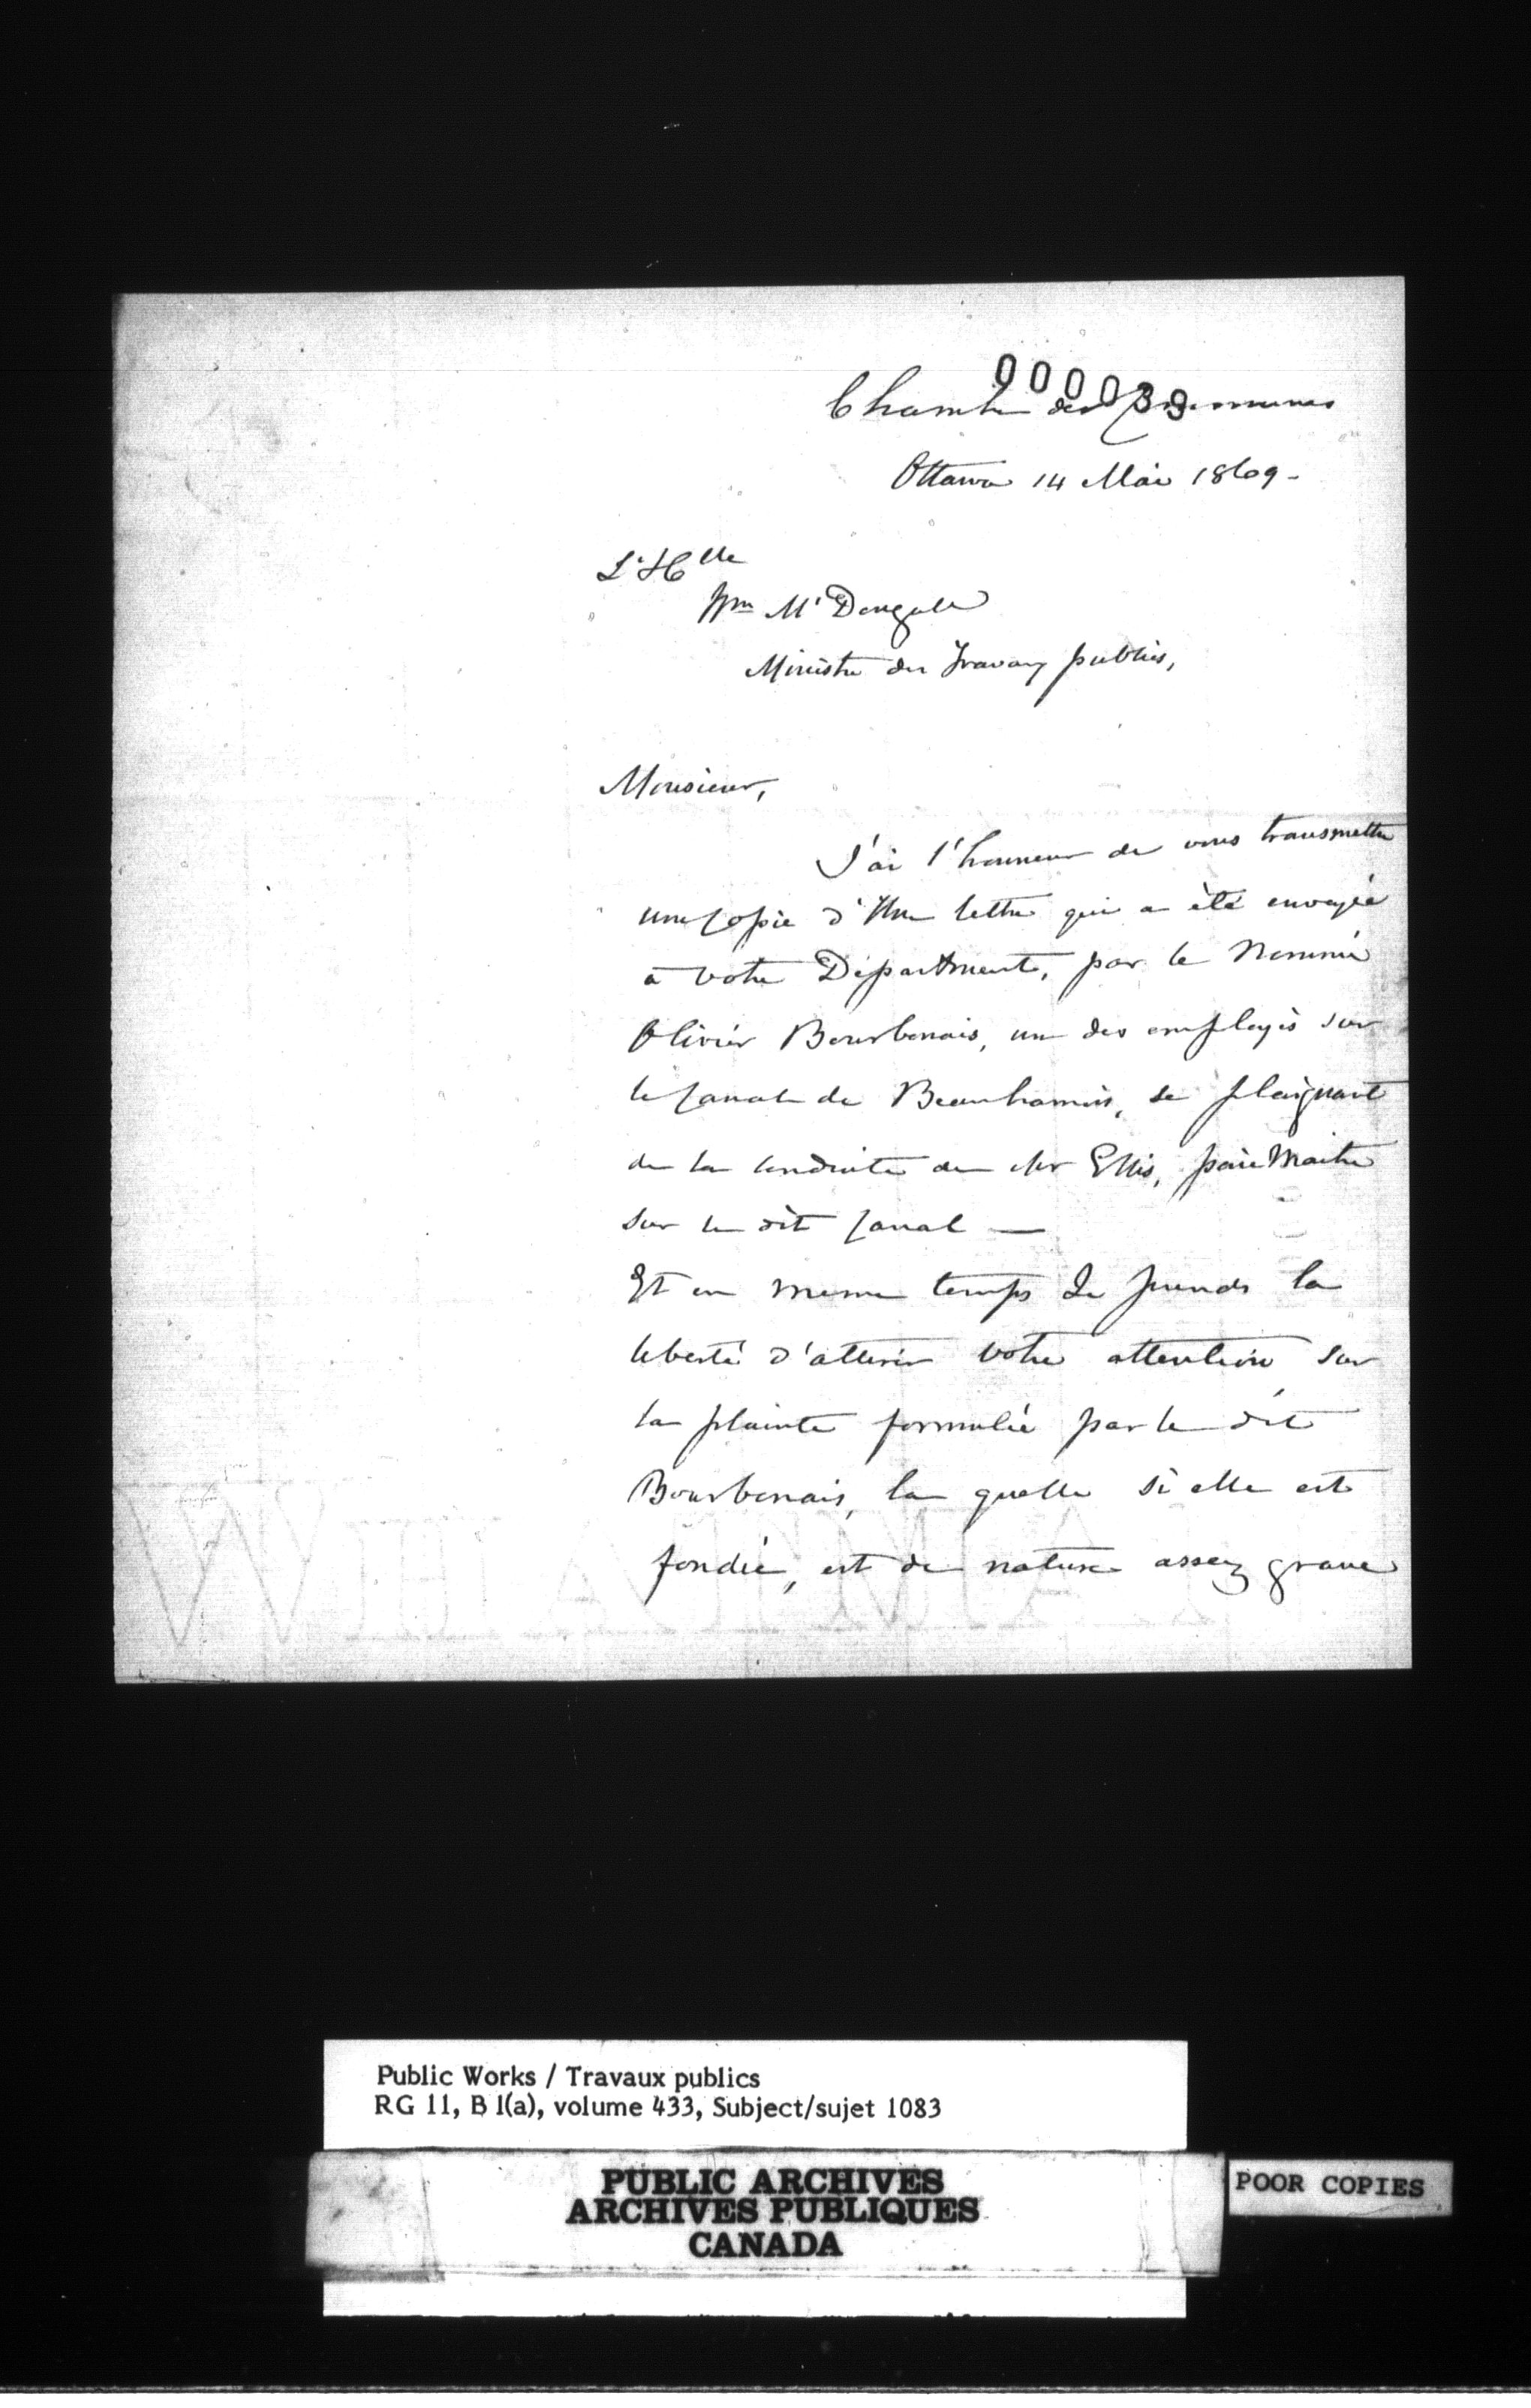 000039
Chambre des Communes
Ottawa 14 Mai 1869-
L'Hble
Wm McDougall
Ministre des Travaux publics,
Monsieur,
J'ai l'honneur de vous transmettre
une copie d'une lettre qui a été envoyée
a votre Department, par le Nommé
Olivier Bourbonais, un des employés sur
le Canal de Beauharnois, se plaignant
de la conduite de Mr Ellis, paie Maitre
sur le dit Canal —
Et en meme temps Je prends la
liberté d'attirer votre attention sur
la plainte formulée par le dit
Bourbonais, la quelle si elle est
fondée, est de nature assez grave
Public Works / Travaux publics
RG 11, B 1(a), volume 433, Subject/sujet 1083
PUBLIC ARCHIVES
ARCHIVES PUBLIQUES
CANADA
POOR COPIES